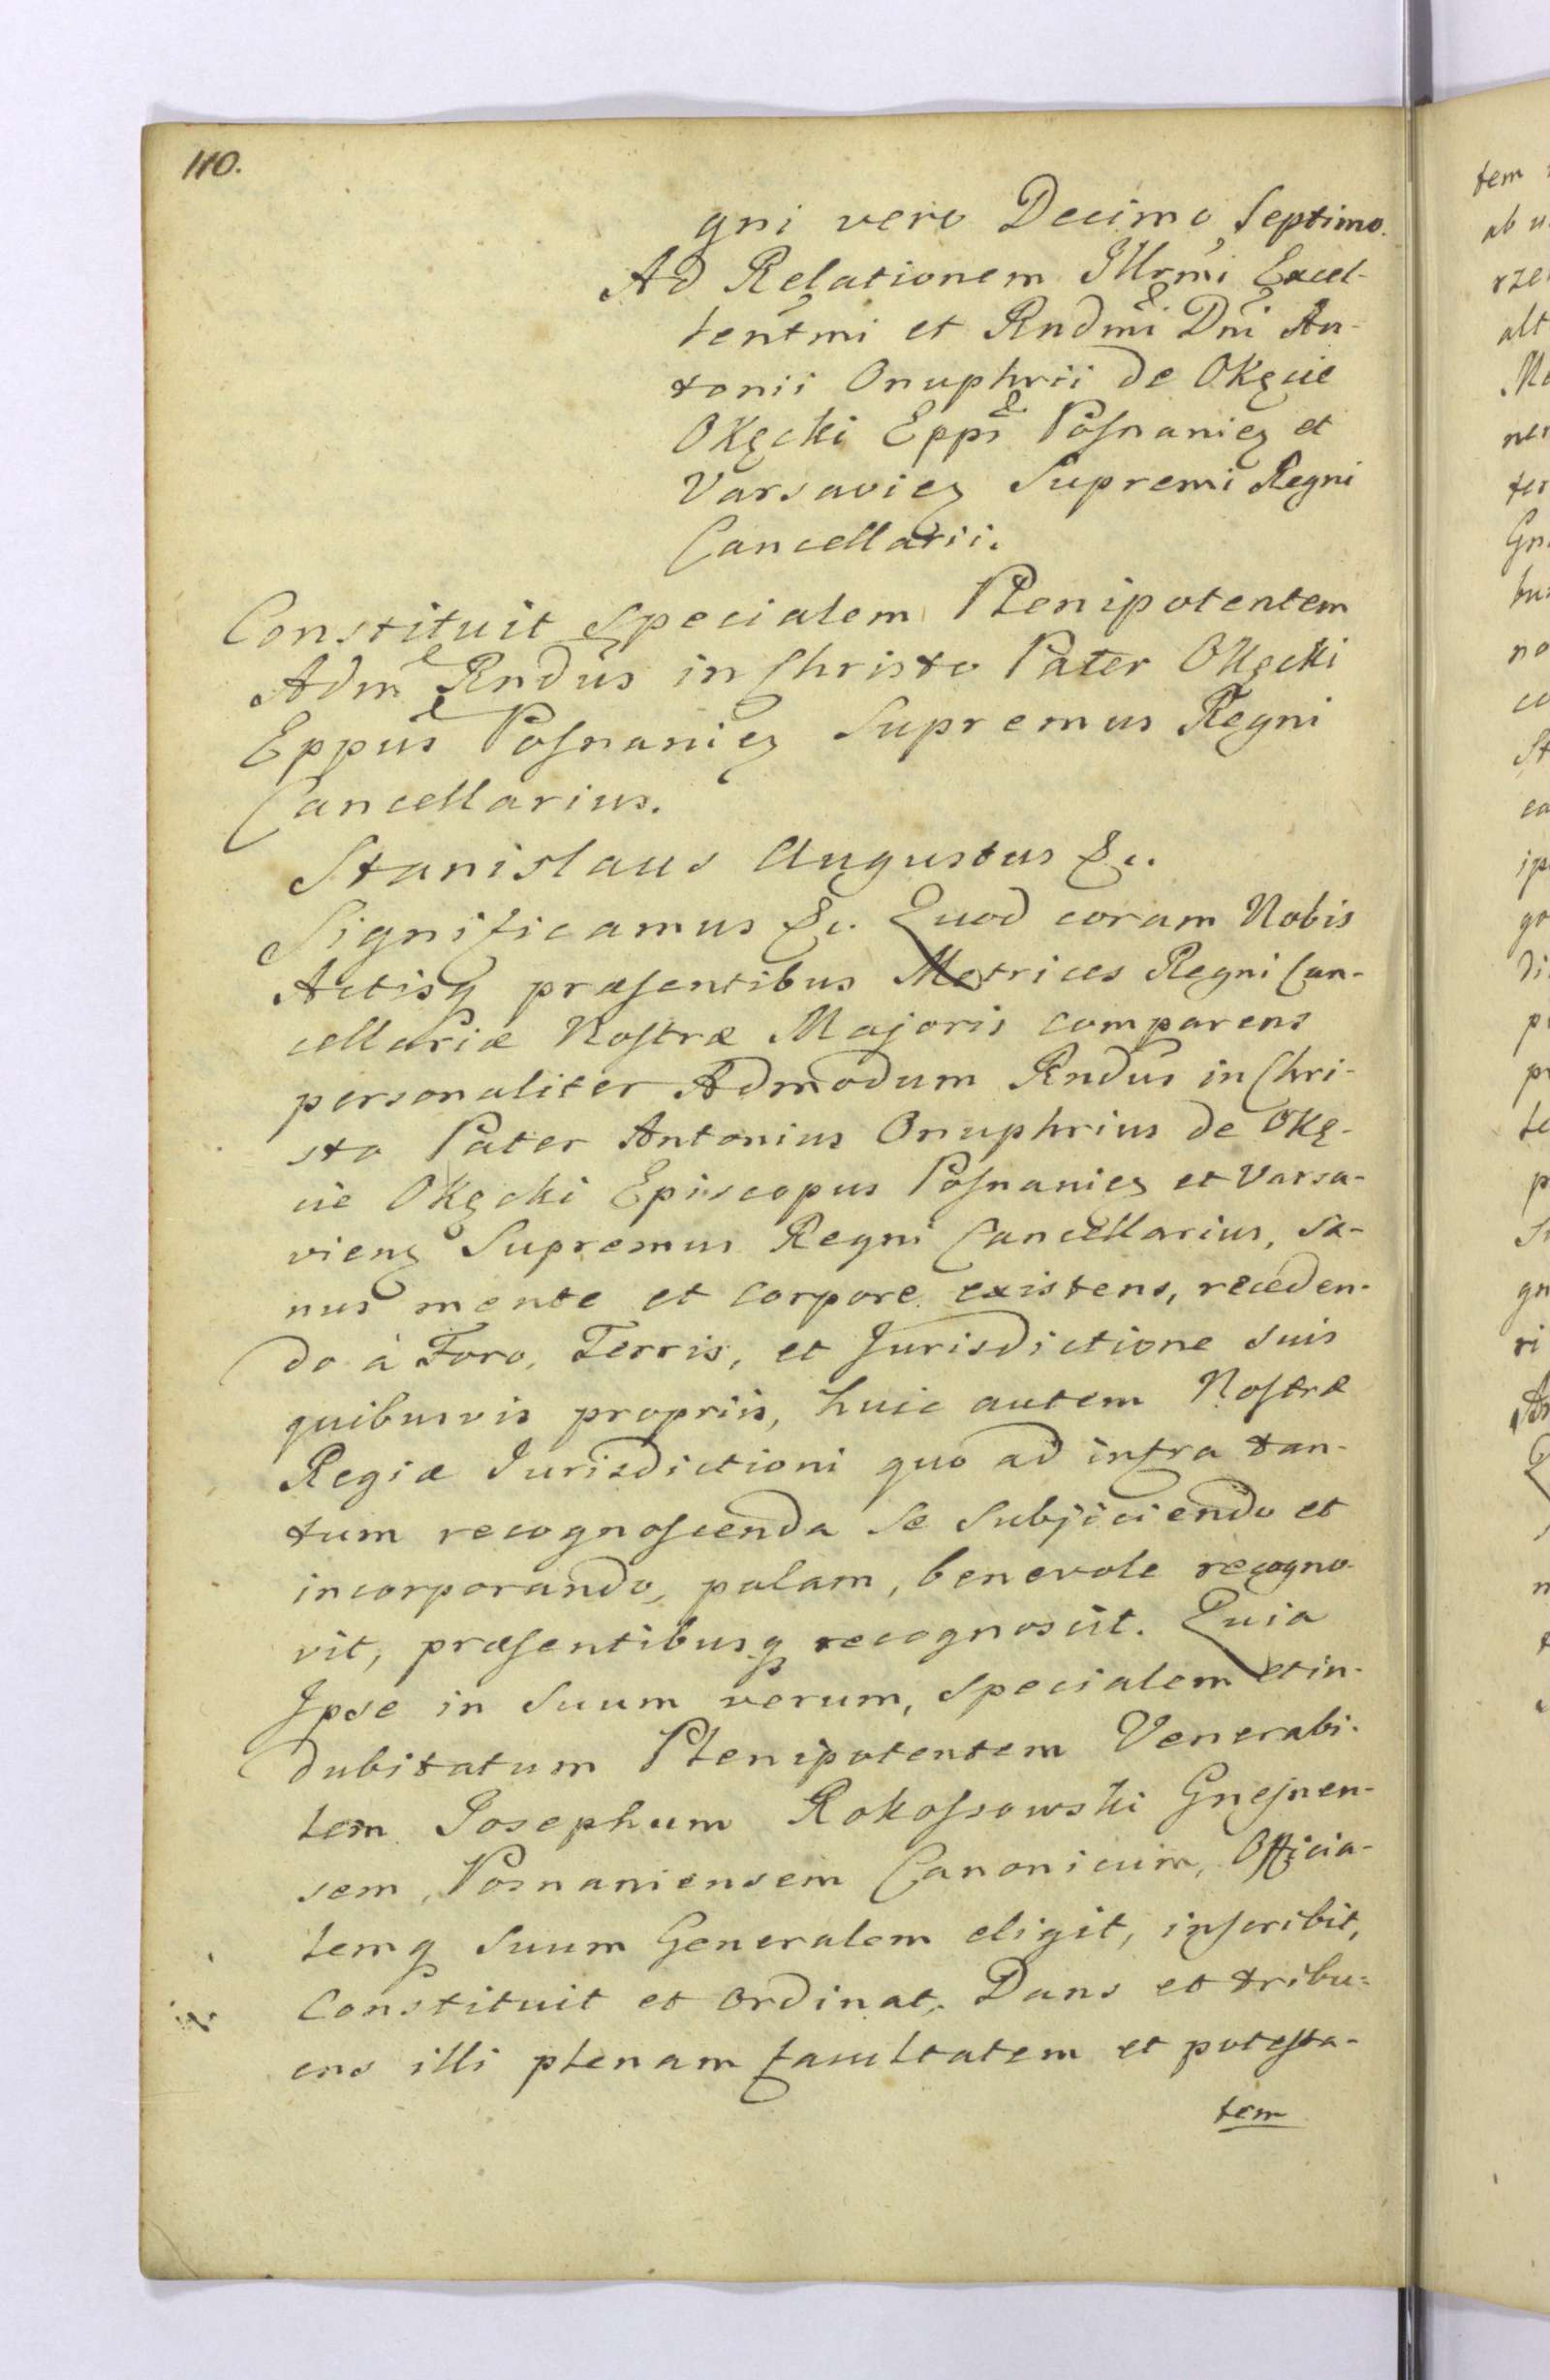 110.
gni vero Decimo Septimo.
Ad Relationem Illrmi Excel-
lentmi et Rndmi Dni An-
tonii Onuphrii de Okęcie
Okęcki Eppi Poſnanien et
Varsavien Supremi Regni
Cancellarii.
Constituit Specialem Plenipotentem
Adm Rndus in Christo Pater Okęcki
Eppus Poſnanien Supremus Regni
Cancellarius.
Stanislaus Augustus &c.
Significamus &c. Quod coram Nobis
Actisq præſentibus Metrices Regni Can-
cellariæ Noſtræ Majoris comparens
personaliter Admodum Rndus in Chri-
sto Pater Antonius Onuphrius de Okę-
cie Okęcki Episcopus Poſnanien et Varsa-
vien Supremus Regni Cancellarius, sa-
nus mente et corpore existens, receden-
do à Foro, Terris, et Jurisdictione suis
quibusvis propriis, huic autem Noſtræ
Regiæ Jurisdictioni quo ad infra tan-
tum recognoſcenda se subjiciendo et
incorporando, palam, benevole recogno-
vit, præſentibusq recognoscit. Quia
Ipse in suum verum, specialem et in-
dubitatum Plenipotentem Venerabi-
lem Josephum Rokoſsowski Gneſnen-
sem, Posnaniensem Canonicum, Officia-
lemq suum Generalem eligit, inſcribit,
Constituit et ordinat. Dans et tribu-
ens illi plenam facultatem et poteſta-
tem
tem
ab u
rze
alt
ner
ter
Gn
no
co
St
ea
ip
go
di
p
p
te
p
gn
ri